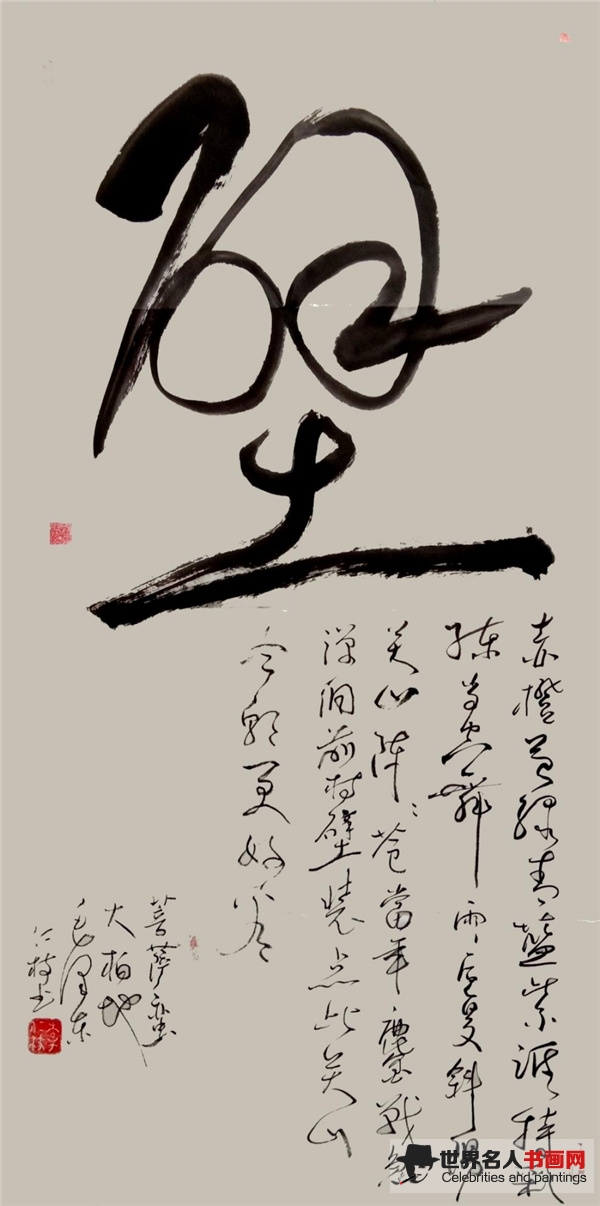 壁
赤橙黄绿青蓝紫谁持彩
练当空舞雨后复斜阳
关山阵々苍當年鏖战急
弹洞前村壁装点此关山
今朝更好看
菩萨蛮
大柏地
毛泽东
仁枝书
世界名人书画网
Celebrities and paintings